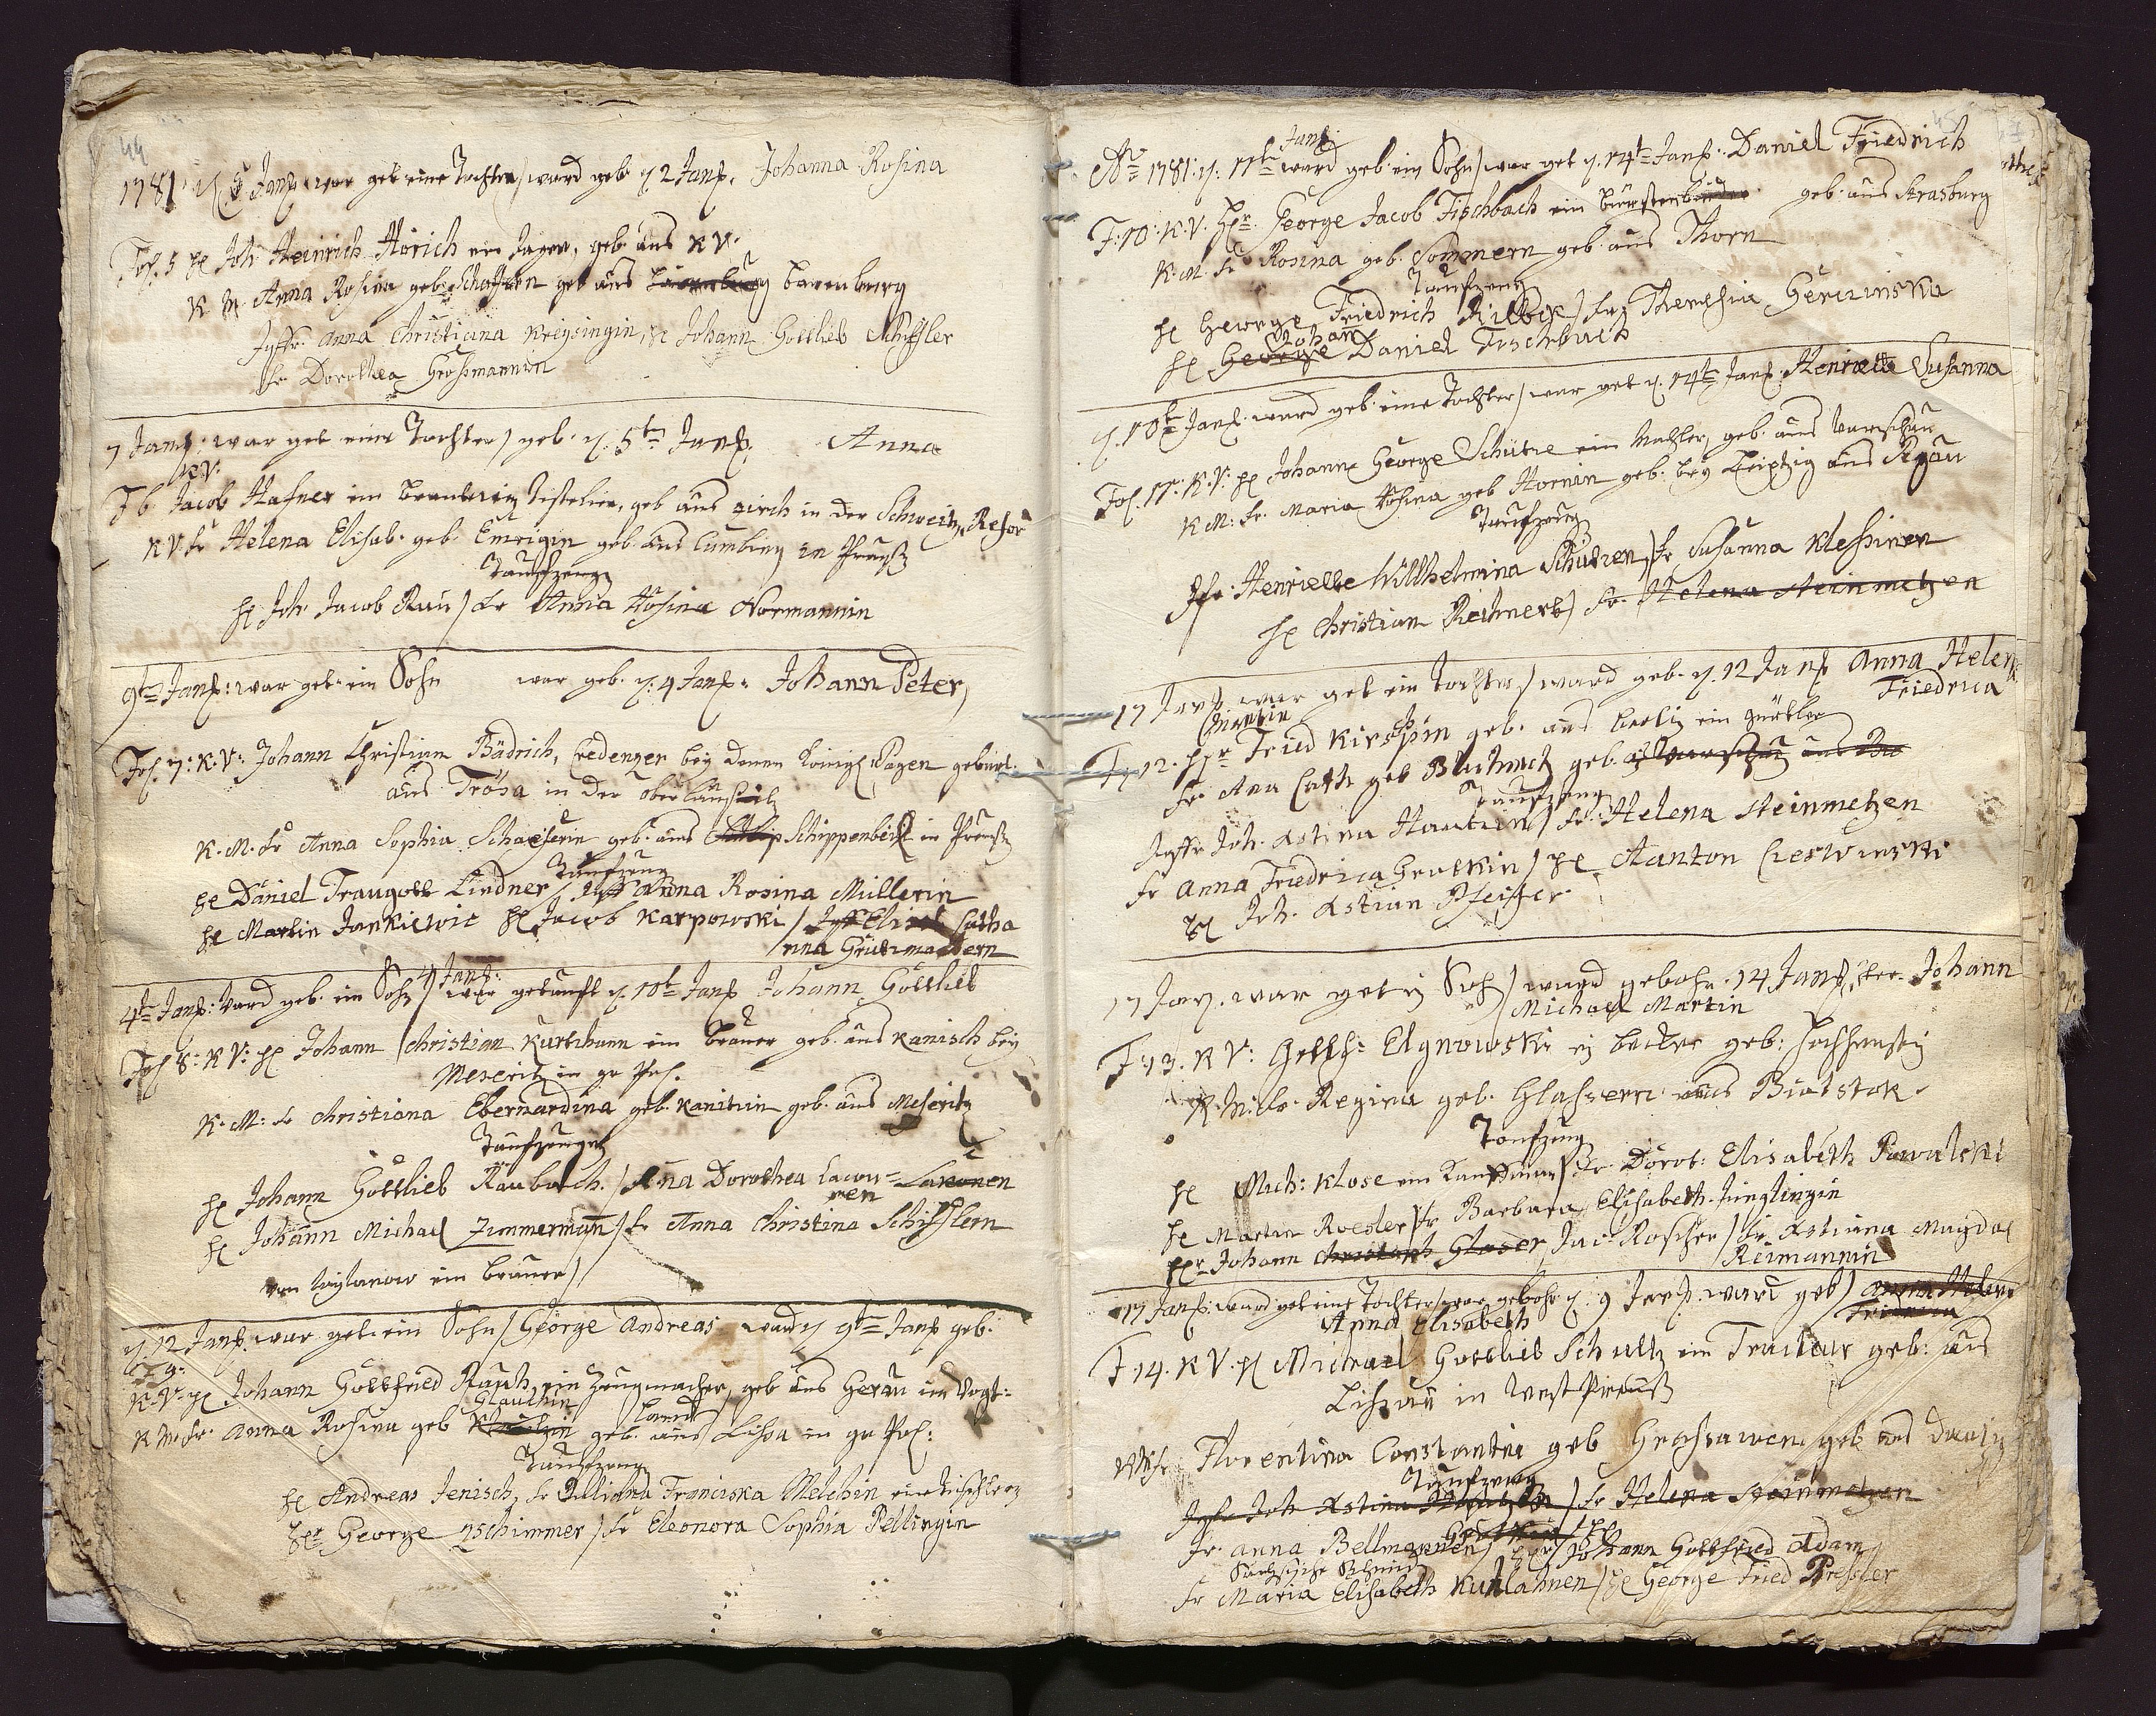 44
1781 d. 5 Janř. war get. eine Tochter, ward geb. d. 2 Janř. Johanna Rosina
Fol. 5 H Joh. Heinrich Hörich ein Jäger, geb. aus
K M. Anna Rosina geb. Schaffern geb. aus barenburg
Jgffr. Anna Christiana Kreysingin, H Johann Gottlieb Schiffler
Fr. Dorothea Großmannin
7 Janř. war get. eine Tochter, geb. d. 5t Janř. Anna
K V.
F 6. Jacob Hafner ein geb. aus Zirch in der Schweitz, Refor
K V Fr Helena Elisab. geb. Emrigin geb. aus Cumbing in Preuß
Taufzeug
H Joh. Jacob Rau, Fr Anna Rosina Normannin
9t Janř. war get. ein Sohn war geb. d. 4 Janř. Johann Peter,
Fol. 7: K. V: Johann Christian Bädrich, Credenzer bey denen Königl. Pagen gebürt.
aus Tröba in der oberlausitz
K. M. Fr Anna Sophia Schaeferin geb. aus Schippenbeil in Preuß
Taufzeug
H Daniel Traugott Lindner, Jgffr Anna Rosina Müllerin
H Martin Jankiewic H Jacob Karpowski / Jgff Elisab Catha
rina Grützmachern
4t Janř. ward geb. ein Sohn, war getauft d. 10t Janř Johann Gottlieb
Fol 8: K V: H Johann Christian Kurtzhann ein Brauer geb. aus Kanisch bey
Meseritz in gr Pol.
K. M: Fr Christiana Ebernardina geb. Kanitzin geb. aus Meseritz
Taufzeugen
H Johann Gottlieb Raubach. / Anna Dorothea Lacou= Lakonen
ren
H Johann Michael Zimmermann / Fr Anna Christina Schifflern
ein Brauer /
d. 12 Janř. war get. ein Sohn / George Andreas ward d 9t Janř geb.
F 9.
K. V. H Johann Gottfried Rauh, ein Zeugmacher, geb aus Gerau im Vogt=
Glauchin land
K M. Fr. Anna Rosina geb geb. aus Lissa in gr Pol:
Taufzeug
H Andreas Jenisch, Fr Juliana Franciska Melchin eine Tischlern
Hr George Zschimmer / Fr Eleonora Sophia Pellingin
45
Janř.
Ao 1781. d. 11t ward geb. ein Sohn / war get d. 14t Janř. Daniel Friedrich
F. 10. K. V. Hr. George Jacob Fischbach ein bürstenbinder geb. aus Strasburg
K. M. Fr Rosina geb. Sommern geb. aus Thorn
Taufzeug
H George Friedrich Rilbek / Fr Theresia Gerczinska
Johann
H George Daniel Fischbach
d. 10t Janř. ward geb. eine Tochter / war get d. 14t Janř. Henriette Susanna
Fol. 11. K. V: H Johann George Schütze ein Mahler, geb. aus Warschau
K M: Fr. Maria Rosina geb Hornin geb. bey Leipzig aus Pegau
Taufzeug
Jgfr. Henriette Willhelmina Schützen, Fr Susanna Kleßinen
H Christian Reichnert / Fr. Helena Steinmetzen
17 Janř. war get ein Tochter, / ward geb. d. 12 Janř Anna Helen
Friedrica
F. 12. Hr Fried Kirschstin geb. aus Berlin ein Gürtler
Fr. Ana Cath geb Blühmch geb.
Taufzeug
Jgffr Joh. Xstina / Fr. Helena Steinmetzen
Fr Anna Friedrica Gratkin / H Aanton Cieswinski
H Joh. Xstian Pfeiffer
17 Jan. war get ein Sohn / ward gebohr. 14 Janř. Johann
Michael Martin
F. 13. K V: Gottfr. Elgnowski ein becker geb: Hochenstein
K. M. Fr. Regina geb. Glassern aus Bialstok.
Taufzeug
H Mich: Klose ein Kauffmann / Fr. Dorot: Elisabeth Pawalski
H Martin Roesler / Fr Barbara Elisabeth Jünglingin
Hr Johann Christoph Glaser, Jac Roscher / Fr Xstiana Magdal
Reimannin
17 Janř. ward get eine Tochter, war gebohr d. 9 Janř. ward get / Anna Helen
Anna Elisabeth Fridrica
F 14. K V. H Michael Gottlieb Schultz ein Traiteur geb: aus
Lissau in West Preuß
K M Fr Florentina Constantia geb Grassawen, geb aus Danzig
Taufzeug
Jgfr Joh Xstina / Fr Helena Steinmetzen
Fr. Anna Bellmannen / Hr Johann Gottfried Adam
Fr Maria Elisabeth Kurtzahnen / H George Fried Pressler